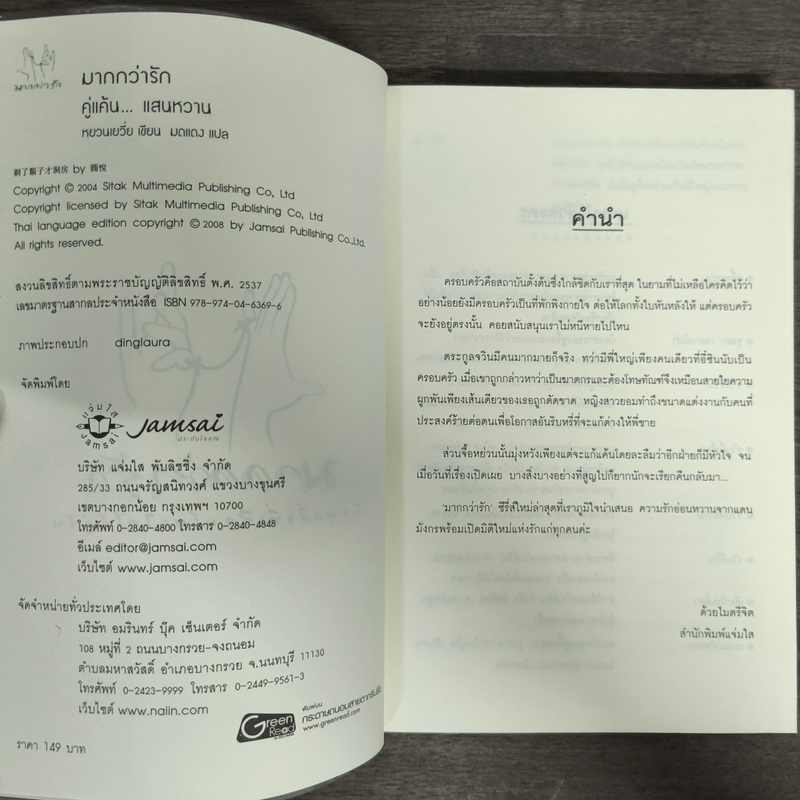 มากกว่ารัก
มากกว่ารัก
คู่แค้น... แสนหวาน
หยวนเยวี่ย เขียน มดแดง แปล
剃了鬍子才洞房 by 圓悅
Copyright © 2004 Sitak Multimedia Publishing Co, Ltd
Copyright licensed by Sitak Multimedia Publishing Co, Ltd
Thai language edition copyright © 2008 by Jamsai Publishing Co.,Ltd.
All rights reserved.
สงวนลิขสิทธิ์ตามพระราชบัญญัติลิขสิทธิ์ พ.ศ. 2537
เลขมาตรฐานสากลประจำหนังสือ ISBN 978-974-04-6369-6
ภาพประกอบปก dinglaura
จัดพิมพ์โดย
แจ่มใส
Jamsai
Jamsai
บริษัท แจ่มใส พับลิชชิ่ง จำกัด
285/33 ถนนจรัญสนิทวงศ์ แขวงบางขุนศรี
เขตบางกอกน้อย กรุงเทพฯ 10700
โทรศัพท์ 0-2840-4800 โทรสาร 0-2840-4848
อีเมล์ editor@jamsai.com
เว็บไซต์ www.jamsai.com
จัดจำหน่ายทั่วประเทศโดย
บริษัท อมรินทร์ บุ๊ค เซ็นเตอร์ จำกัด
108 หมู่ที่ 2 ถนนบางกรวย-จงถนอม
ตำบลมหาสวัสดิ์ อำเภอบางกรวย จ.นนทบุรี 11130
โทรศัพท์ 0-2423-9999 โทรสาร 0-2449-9561-3
เว็บไซต์ www.naiin.com
Green Read
พิมพ์บน
กระดาษถนอมสายตากรีนรี้ด
www.greenread.com
ราคา 149 บาท
คำนำ
ครอบครัวคือสถาบันตั้งต้นซึ่งใกล้ชิดกับเราที่สุด ในยามที่ไม่เหลือใครคิดไว้ว่า
อย่างน้อยยังมีครอบครัวเป็นที่พักพิงกายใจ ต่อให้โลกทั้งใบหันหลังให้ แต่ครอบครัว
จะยังอยู่ตรงนั้น คอยสนับสนุนเราไม่หนีหายไปไหน
ตระกูลจวินมีคนมากมายก็จริง ทว่ามีพี่ใหญ่เพียงคนเดียวที่อี้ซินนับเป็น
ครอบครัว เมื่อเขาถูกกล่าวหาว่าเป็นฆาตกรและต้องโทษทัณฑ์จึงเหมือนสายใยความ
ผูกพันเพียงเส้นเดียวของเธอถูกตัดขาด หญิงสาวยอมทำถึงขนาดแต่งงานกับคนที่
ประสงค์ร้ายต่อตนเพื่อโอกาสอันริบหรี่ที่จะแก้ต่างให้พี่ชาย
ส่วนจื้อหย่วนนั้นมุ่งหวังเพียงแต่จะแก้แค้นโดยละลืมว่าอีกฝ่ายก็มีหัวใจ จน
เมื่อวันที่เรื่องเปิดเผย บางสิ่งบางอย่างที่สูญไปก็ยากนักจะเรียกคืนกลับมา...
'มากกว่ารัก' ซีรี่ส์ใหม่ล่าสุดที่เราภูมิใจนำเสนอ ความรักอ่อนหวานจากแดน
มังกรพร้อมเปิดมิติใหม่แห่งรักแก่ทุกคนค่ะ
ด้วยไมตรีจิต
สำนักพิมพ์แจ่มใส